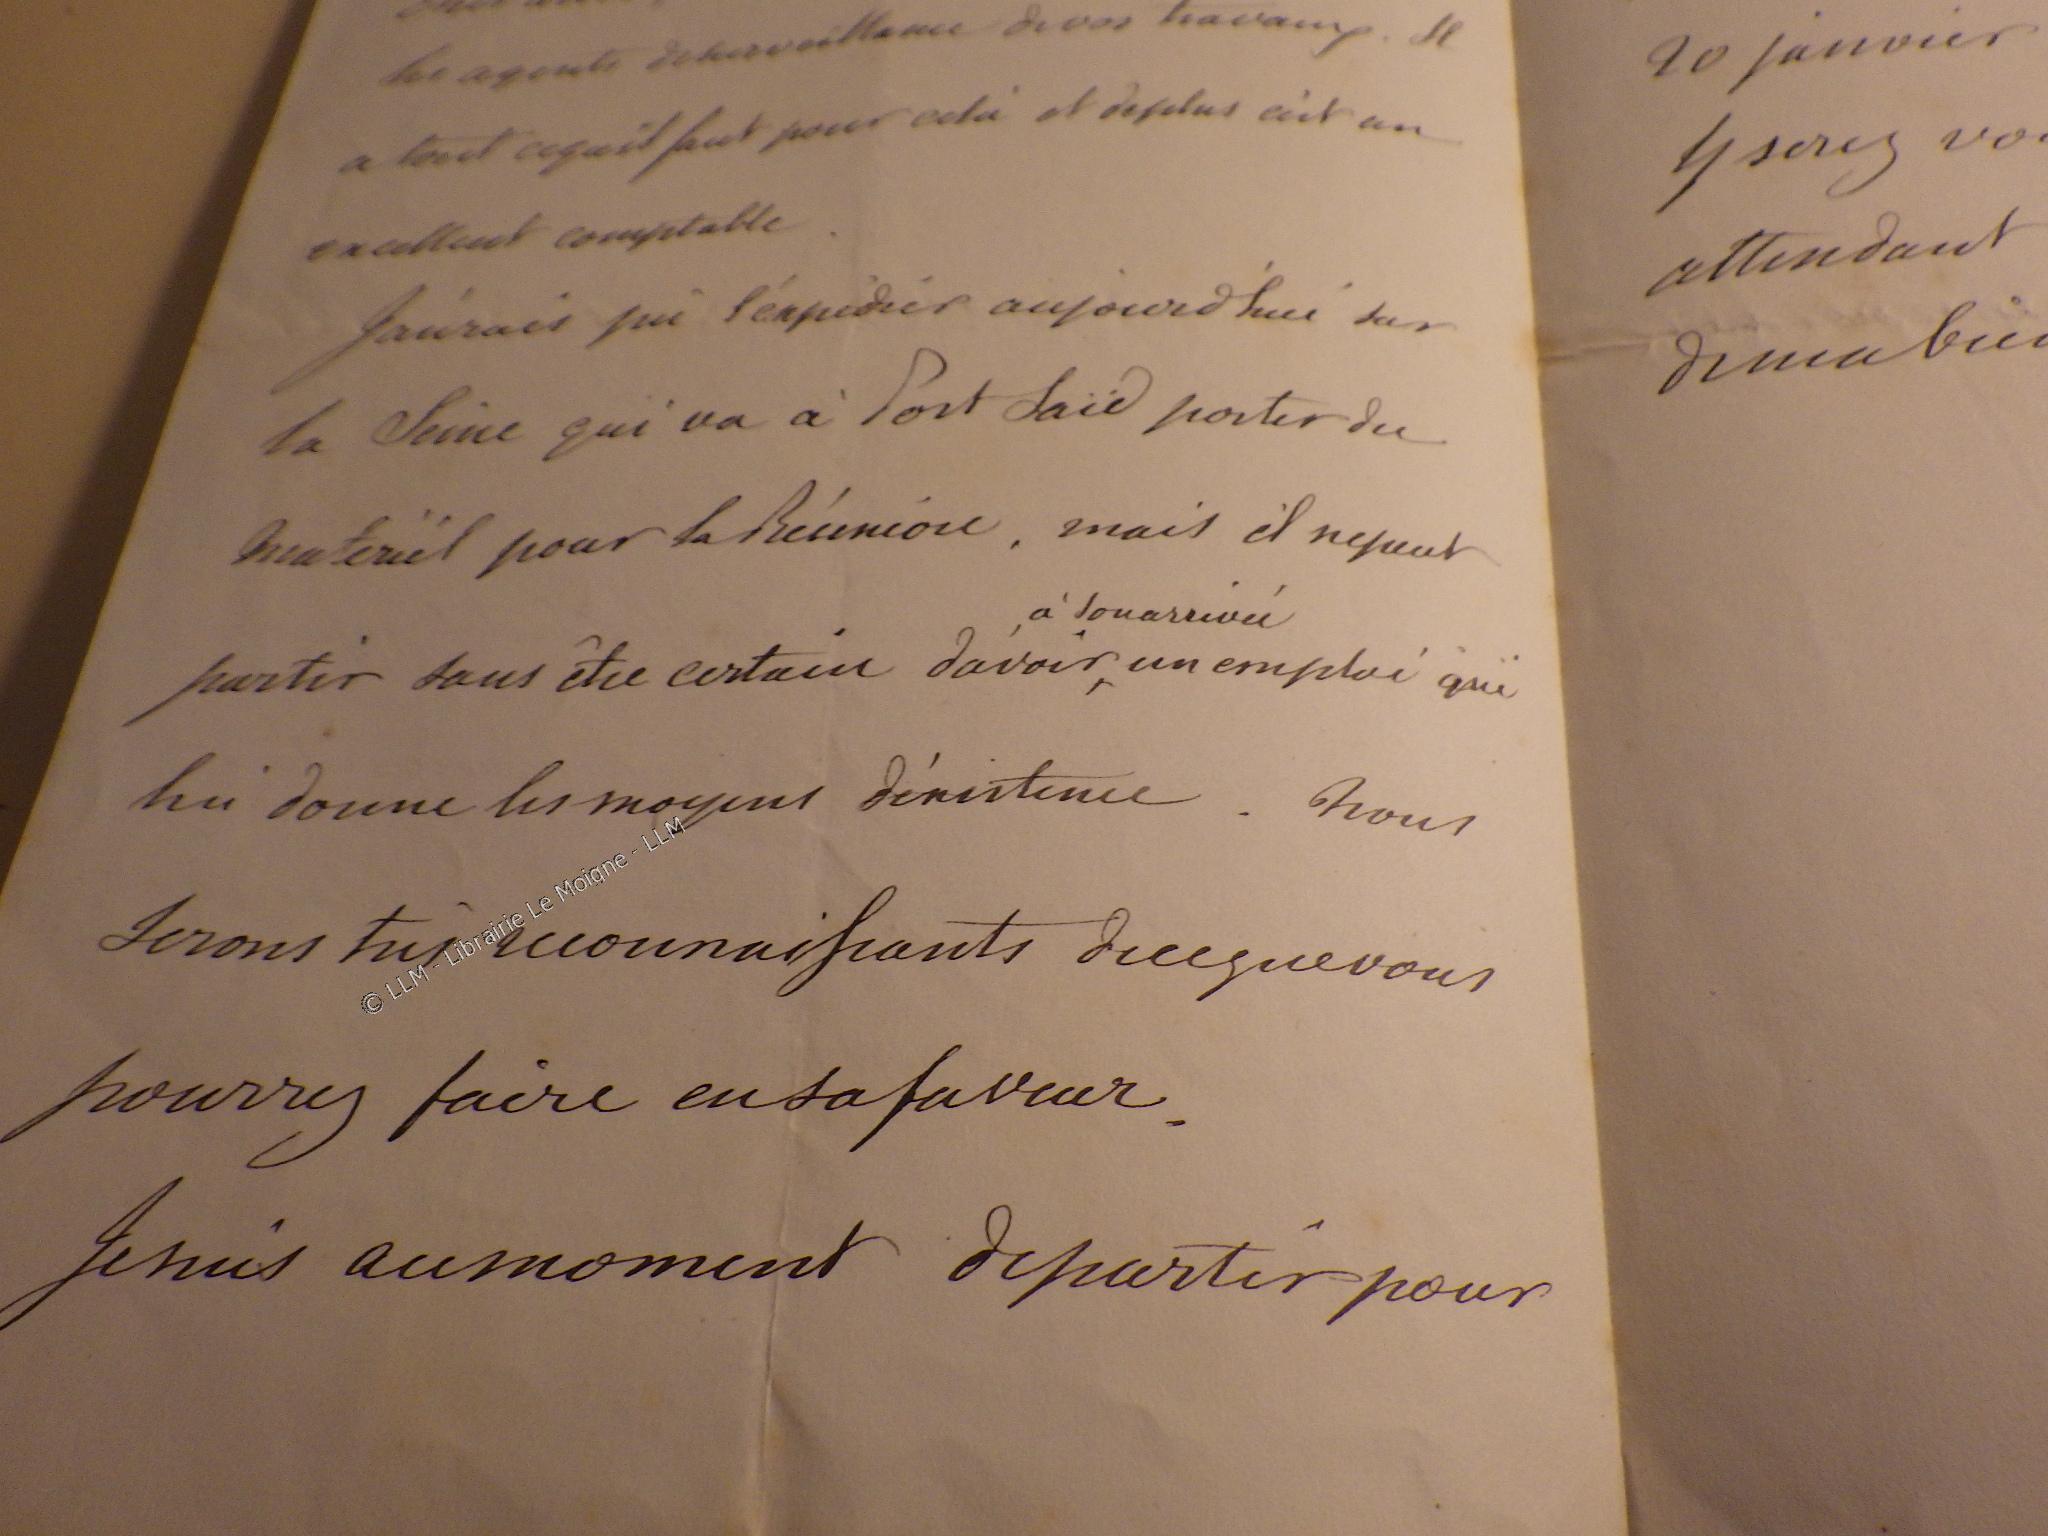 les agents de surveillance de vos travaux. Il
a tout ce qu'il faut pour cela et de plus c'est un
excellent comptable.
J'aurais pu l'expédier aujourd'hui sur
la Seine qui va à Port Saïd porter du
matériel pour la Réunion, mais il ne peut
à son arrivée
partir sans être certain d'avoir un emploi qui
lui donne les moyens d'existence. Nous
serons très reconnaissants de ce que vous
pourrez faire en sa faveur.
Je suis au moment de partir pour
20 janvier
y serez
attendant
de ma
© LLM - Librairie Le Moigne - LLM